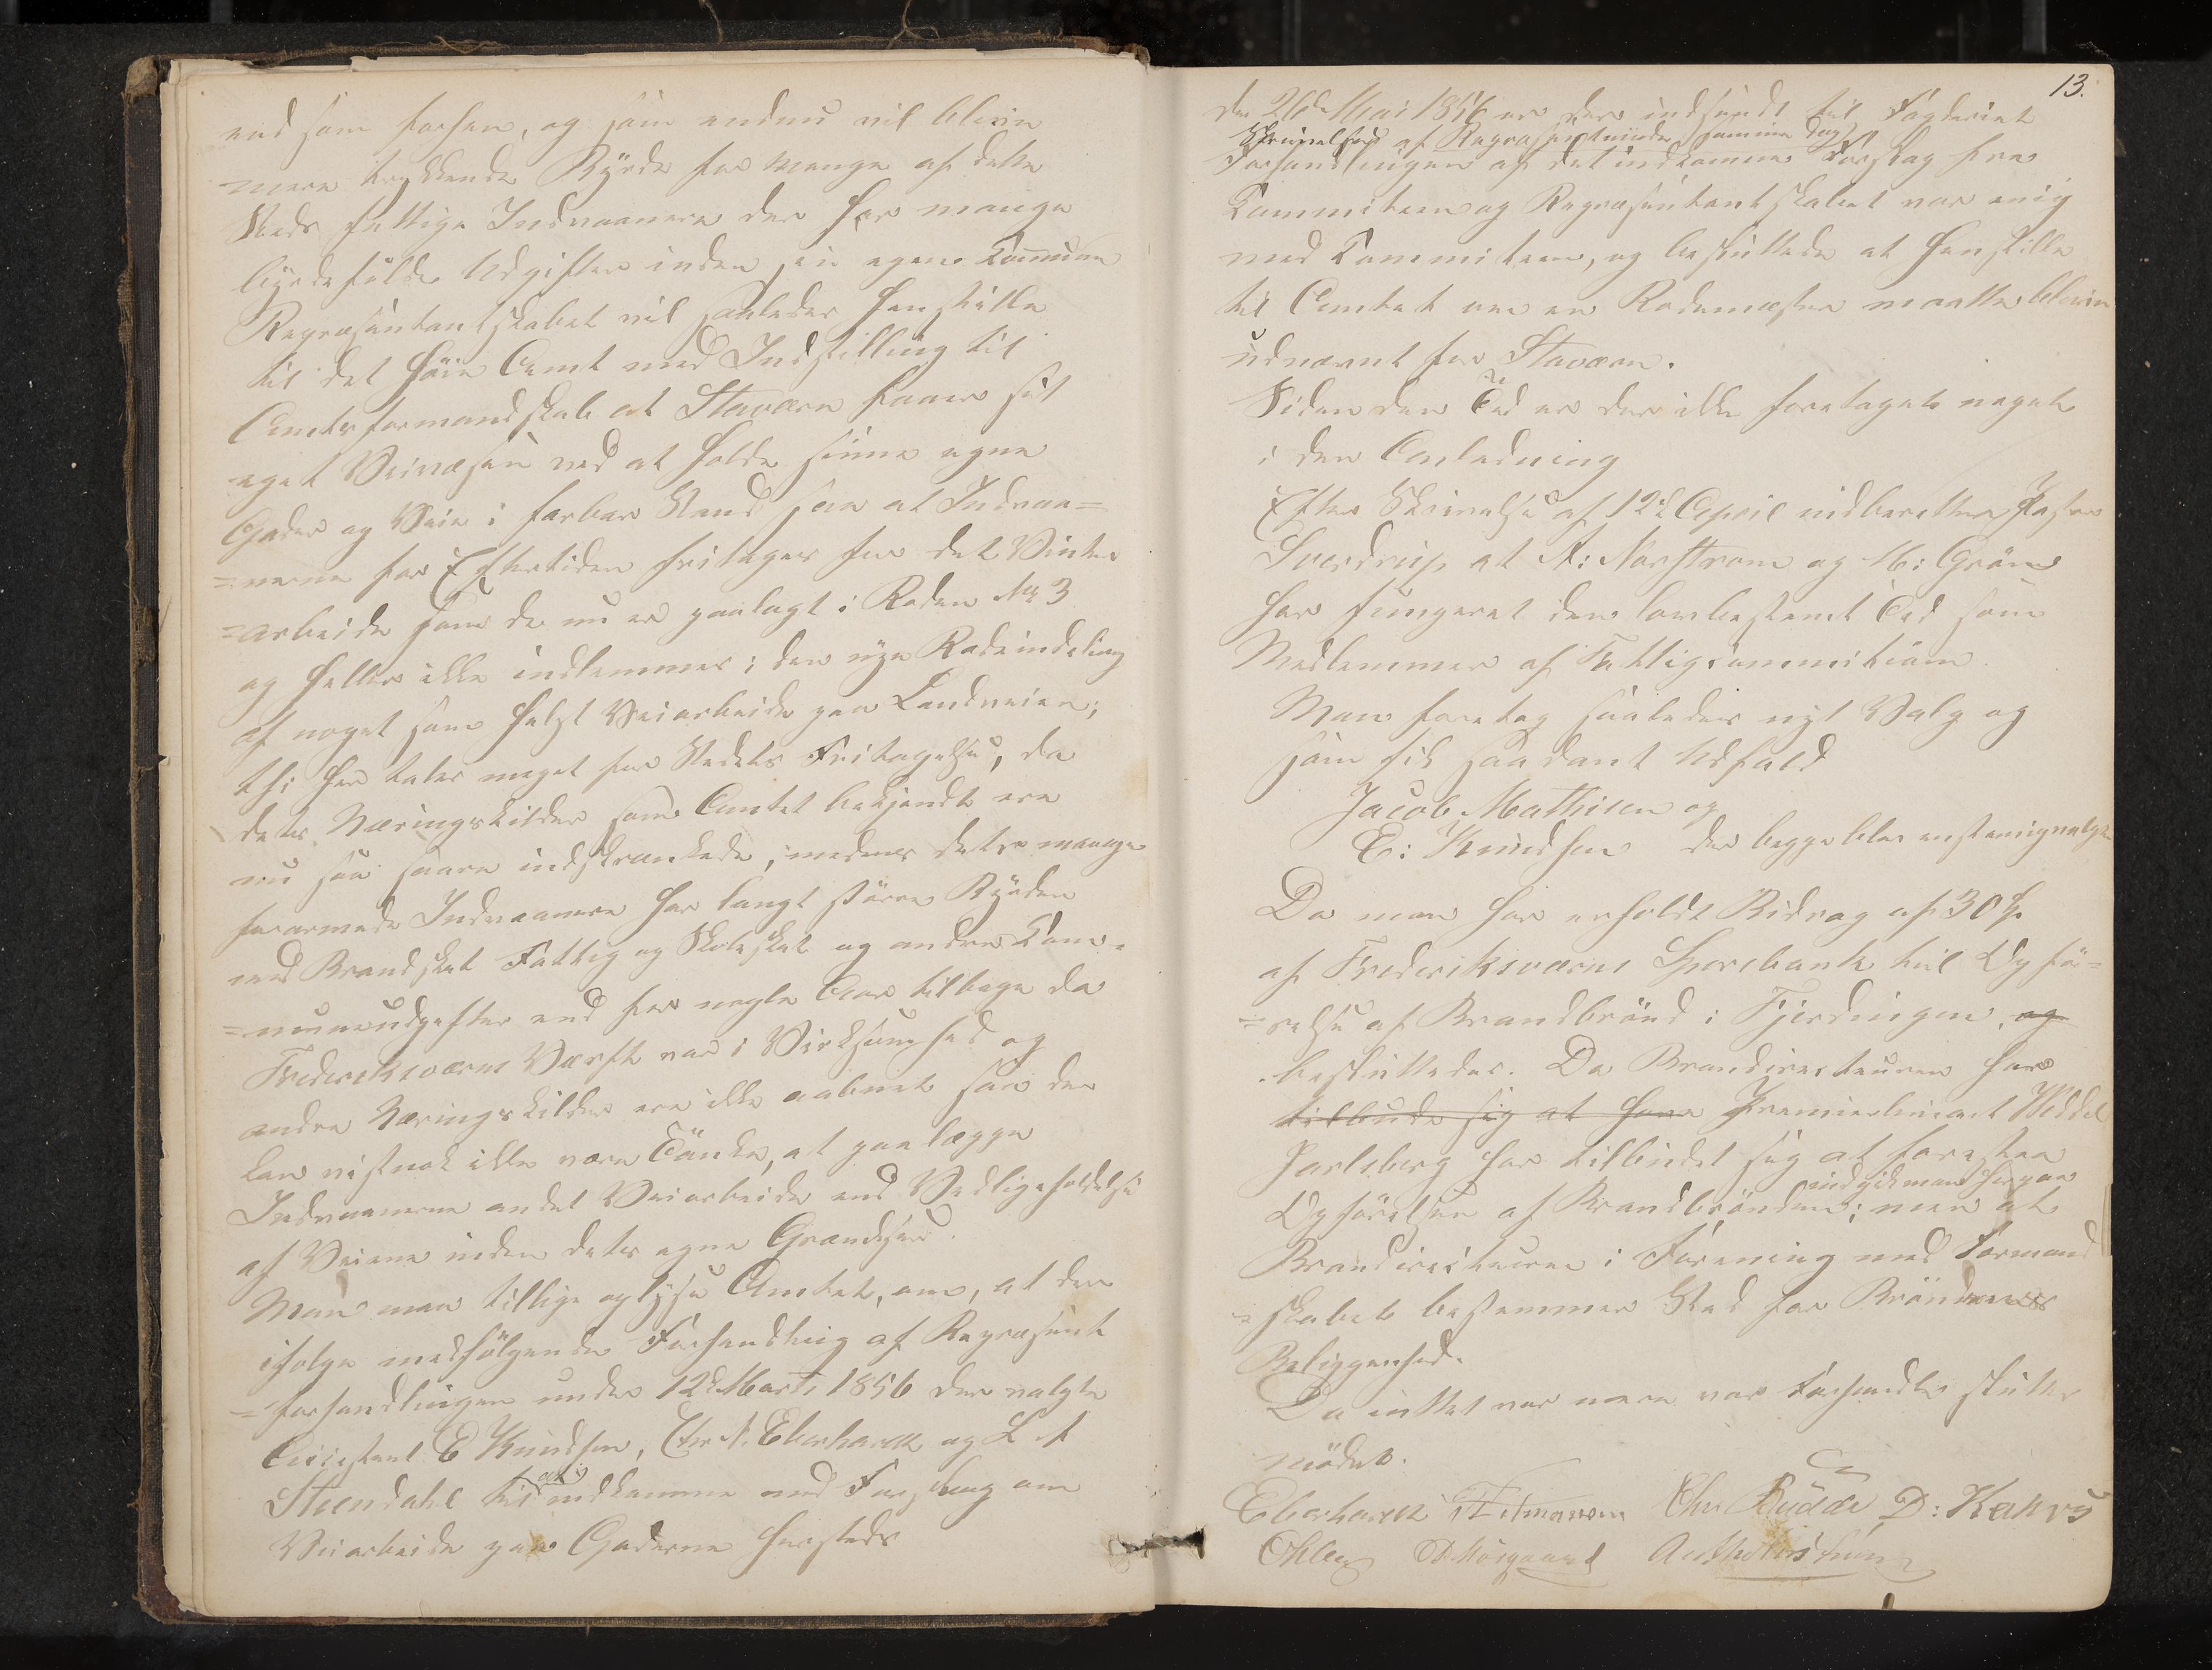 end som forhen, og som endnu vil blive
mere trykkende Byrde for Mange af dette
Steds fattige Indvaanere der har mange
byrdefulde Udgifter inden sin egen Commune
Repræsentantskabet vil saaledes henstille
til det høie Amt med Indstilling til
Amtsformandskab at Staværn faaer sit
eget Veivæsen ved at holde sinne egne
Gader og Veie i farbar Stand saa at Indvaa=
=nerne for Eftertiden fritages for det Vinter
=arbeide som de nu er paalagt i Roden No 3
og heller ikke indlemmes i den nye Rodeindeling
af noget som helst Veiarbeide paa Landveien;
thi her taler meget for Stedets Fritagelse, da
dets Næringskilder som Amtet bekjendt ere
nu saa saare indskrænkede, medens dets mange
forarmede Indvaanere har langt større Byrder
med Brandskat Fattig og Skoleskat og andre Com=
=muneudgifter end for nogle Aar tilbage da
Frederiksværns Værft var i Virksomhed og
andre Næringskilder ere ikke aabnet saa der
kan vistnok ikke være Tanke, at paalægge
Indvaanerne andet Veiarbeide end Vedligeholdelse
af Veiene inden dets egne Grændser.
Man maa tillige oplyse Amtet, om, at der
ifølge medfølgende Forhandling af Repræsent
=forhandlingen under 12te Marts 1856 der valgte
Assistent E Knudsen, Chr N. Eberhardt og L A
Steendahl til at indkomme med Forslag om
Veiarbeide paa Gaderne hersteds
13.
den 26de Mai 1856 er der indsendt til Fogderiet
Skrivelse af Repræsentantm samme Dag
Forhandlingen af det indkomne Forslag fra
Commiteen og Repræsentantskabet var enig
med Commiteen, og besluttede at henstille
til Amtet om en Rodemester maatte blive
udnævnt for Staværn.
Siden den Tid er der ikke foretaget noget
i den Anledning
Efter Skrivelse af 12te April indberetter Pastor
Sverdrup at A: Norstrøm og M: Grøn
har fungeret den lovbestemt Tid som
Medlemmer af Fattigcommitionen.
Man foretog saaledes nyt Valg og
som fik saadant Udfald
Jacob Mathisen og
E: Knudsen der begge blev enstemig valgte
Da man har erholdt Bidrag af 30 Sp.
af Frederiksværns Sparebank til Opfø=
=relse af Brandbrønd i Fjerdingen, og
besluttedes. Da Branddirecteuren har
tilbude sig at have Premierlieunant Weddel
Jarlsberg har tilbudet sig at forestaa
indgik man herpaa
Opførelsen af Brandbrønden; men at
Branddirecteuren i Forening med Formand
=skabet bestemmer Sted for Brøndens
Beliggenhed.
Da intet var mere var Forhandle sluttes
mødet.
Eberhardt Chr Budde D: Kahrs
Ohlen